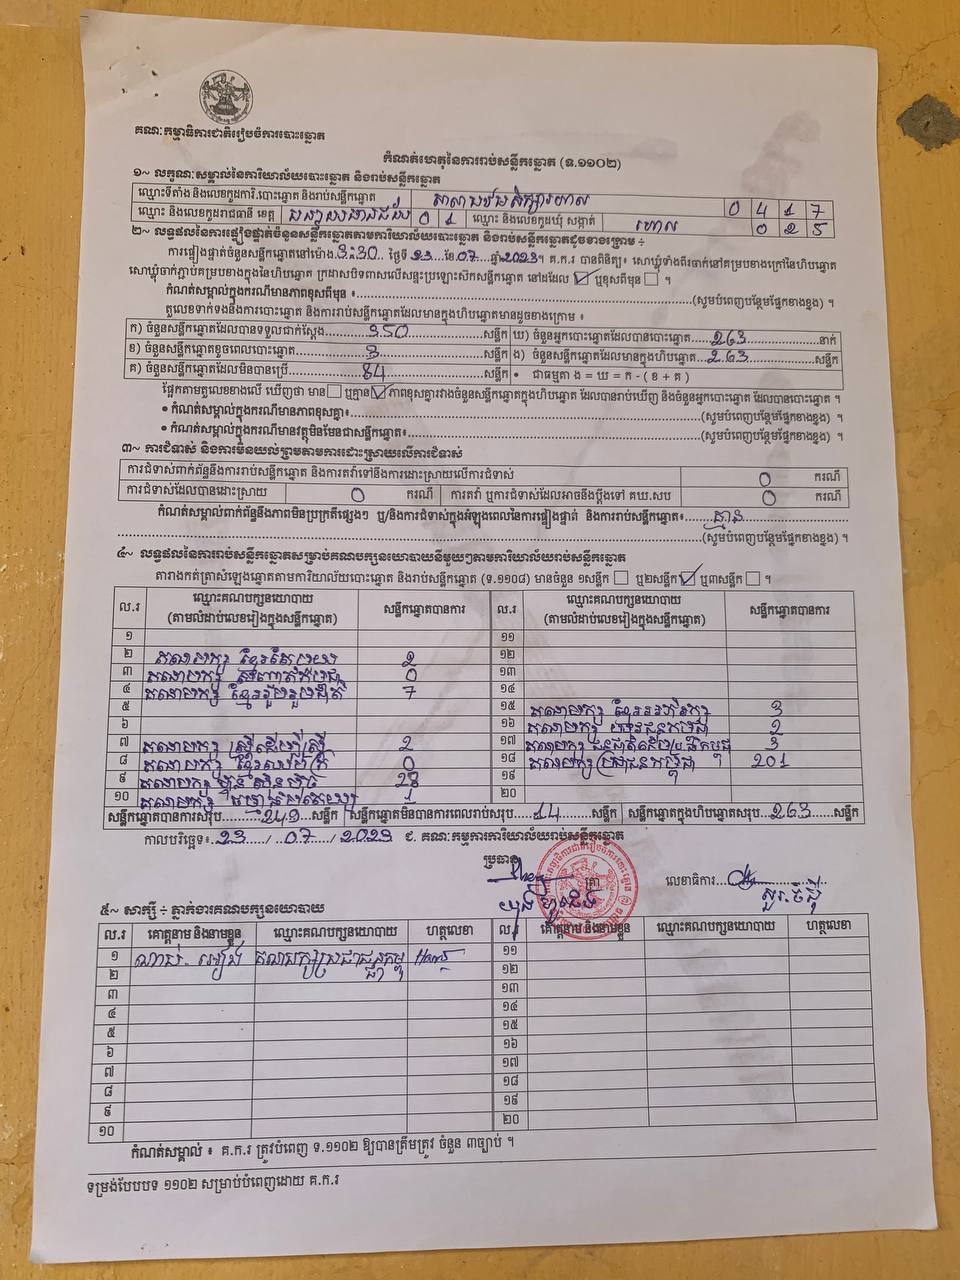 គណៈកម្មាធិការជាតិរៀបចំការបោះឆ្នោត
កំណត់ហេតុនៃការរាប់សន្លឹកឆ្នោត (ទ.១១០២)
១~ លក្ខណៈសម្គាល់នៃការិយាល័យបោះឆ្នោត និងរាប់សន្លឹកឆ្នោត
ឈ្មោះទីតាំង និងលេខកូដការិ.បោះឆ្នោត និងរាប់សន្លឹកឆ្នោត 0 4 1 7
ឈ្មោះ និងលេខកូដរាជធានី ខេត្ត បន្ទាយមានជ័យ 0 1 ឈ្មោះ និងលេខកូដឃុំ សង្កាត់ 0 2 5
២~ លទ្ធផលនៃការផ្ទៀងផ្ទាត់ចំនួនសន្លឹកឆ្នោតតាមការិយាល័យបោះឆ្នោត និងរាប់សន្លឹកឆ្នោតដូចខាងក្រោម ÷
ការផ្ទៀងផ្ទាត់ចំនួនសន្លឹកឆ្នោតនៅម៉ោង 3:30 ថ្ងៃទី 23 ខែ 07 ឆ្នាំ 2023 ។ គ.ក.រ បានពិនិត្យ៖ សោឃ្លុំទាំងពីរចាក់នៅគម្របខាងក្រៅនៃហិបឆ្នោត
សោឃ្លុំចាក់ភ្ជាប់គម្របខាងក្នុងនៃហិបឆ្នោត ក្រដាសបិទពាសលើសន្ទះប្រឡោះស៊កសន្លឹកឆ្នោត នៅដដែល ☑ ឬខុសពីមុន ☐ ។
កំណត់សម្គាល់ក្នុងករណីមានភាពខុសពីមុន ៖ (សូមបំពេញបន្ថែមផ្នែកខាងខ្នង) ។
តួលេខទាក់ទងនឹងការបោះឆ្នោត និងការរាប់សន្លឹកឆ្នោតដែលមានក្នុងហិបឆ្នោតមានដូចខាងក្រោម ៖
ក) ចំនួនសន្លឹកឆ្នោតដែលបានទទួលជាក់ស្តែង 350 សន្លឹក ឃ) ចំនួនអ្នកបោះឆ្នោតដែលបានបោះឆ្នោត 263 នាក់
ខ) ចំនួនសន្លឹកឆ្នោតខូចពេលបោះឆ្នោត 3 សន្លឹក ង) ចំនួនសន្លឹកឆ្នោតដែលមានក្នុងហិបឆ្នោត 263 សន្លឹក
គ) ចំនួនសន្លឹកឆ្នោតដែលមិនបានប្រើ 84 សន្លឹក • ជាធម្មតា ង = ឃ = ក - ( ខ + គ )
ផ្អែកតាមតួលេខខាងលើ ឃើញថា មាន ☐ ឬគ្មាន ☑ ភាពខុសគ្នារវាងចំនួនសន្លឹកឆ្នោតក្នុងហិបឆ្នោត ដែលបានរាប់ឃើញ និងចំនួនអ្នកបោះឆ្នោត ដែលបានបោះឆ្នោត ។
• កំណត់សម្គាល់ក្នុងករណីមានភាពខុសគ្នា៖ (សូមបំពេញបន្ថែមផ្នែកខាងខ្នង) ។
• កំណត់សម្គាល់ក្នុងករណីមានវត្ថុមិនមែនជាសន្លឹកឆ្នោត៖ (សូមបំពេញបន្ថែមផ្នែកខាងខ្នង) ។
៣~ ការជំទាស់ និងការមិនយល់ព្រមតាមការដោះស្រាយលើការជំទាស់
ការជំទាស់ពាក់ព័ន្ធនឹងការរាប់សន្លឹកឆ្នោត និងការតវ៉ាទៅនឹងការដោះស្រាយលើការជំទាស់ 0 ករណី
ការជំទាស់ដែលបានដោះស្រាយ 0 ករណី ការតវ៉ា ឬការជំទាស់ដែលអាចនឹងប្តឹងទៅ គឃ.សប 0 ករណី
កំណត់សម្គាល់ពាក់ព័ន្ធនឹងភាពមិនប្រក្រតីផ្សេងៗ ឬ/និងការជំទាស់ក្នុងអំឡុងពេលនៃការផ្ទៀងផ្ទាត់ និងការរាប់សន្លឹកឆ្នោត៖ គ្មាន
(សូមបំពេញបន្ថែមផ្នែកខាងខ្នង) ។
៤~ លទ្ធផលនៃការរាប់សន្លឹកឆ្នោតសម្រាប់គណបក្សនយោបាយនីមួយៗតាមការិយាល័យរាប់សន្លឹកឆ្នោត
តារាងកត់ត្រាសំឡេងឆ្នោតតាមការិយាល័យបោះឆ្នោត និងរាប់សន្លឹកឆ្នោត (ទ.១១០៨) មានចំនួន ១សន្លឹក ☐ ឬ២សន្លឹក ☑ ឬ៣សន្លឹក ☐ ។
ល.រ ឈ្មោះគណបក្សនយោបាយ (តាមលំដាប់លេខរៀងក្នុងសន្លឹកឆ្នោត) សន្លឹកឆ្នោតបានការ ល.រ ឈ្មោះគណបក្សនយោបាយ (តាមលំដាប់លេខរៀងក្នុងសន្លឹកឆ្នោត) សន្លឹកឆ្នោតបានការ
១ ១១
២ គណបក្ស 2 ១២
៣ គណបក្ស 0 ១៣
៤ គណបក្ស ខ្មែររួបរួមជាតិ 7 ១៤
៥ ១៥ គណបក្ស ខ្មែរអភិរក្ស 3
៦ ១៦ គណបក្ស 2
៧ គណបក្ស ស្ត្រីដើម្បីស្ត្រី 2 ១៧ គណបក្ស ជនជាតិដើមប្រជាធិបតេយ្យកម្ពុជា 3
៨ គណបក្ស 0 ១៨ គណបក្សប្រជាជនកម្ពុជា 201
៩ គណបក្ស ហ្វ៊ុនស៊ិនប៉ិច 28 ១៩
១០ គណបក្ស 1 ២០
សន្លឹកឆ្នោតបានការសរុប 249 សន្លឹក សន្លឹកឆ្នោតមិនបានការពេលរាប់សរុប 14 សន្លឹក សន្លឹកឆ្នោតក្នុងហិបឆ្នោតសរុប 263 សន្លឹក
កាលបរិច្ឆេទ៖ 23 / 07 / 2023 ជ. គណៈកម្មការការិយាល័យរាប់សន្លឹកឆ្នោត
ប្រធាន
ត្រា លេខាធិការ
៥~ សាក្សី ÷ ភ្នាក់ងារគណបក្សនយោបាយ
ល.រ គោត្តនាម និងនាមខ្លួន ឈ្មោះគណបក្សនយោបាយ ហត្ថលេខា ល.រ គោត្តនាម និងនាមខ្លួន ឈ្មោះគណបក្សនយោបាយ ហត្ថលេខា
១ គណបក្សប្រជាជនកម្ពុជា ១១
២ ១២
៣ ១៣
៤ ១៤
៥ ១៥
៦ ១៦
៧ ១៧
៨ ១៨
៩ ១៩
១០ ២០
កំណត់សម្គាល់ ៖ គ.ក.រ ត្រូវបំពេញ ទ.១១០២ ឱ្យបានត្រឹមត្រូវ ចំនួន ៣ច្បាប់ ។
ទម្រង់បែបបទ ១១០២ សម្រាប់បំពេញដោយ គ.ក.រ